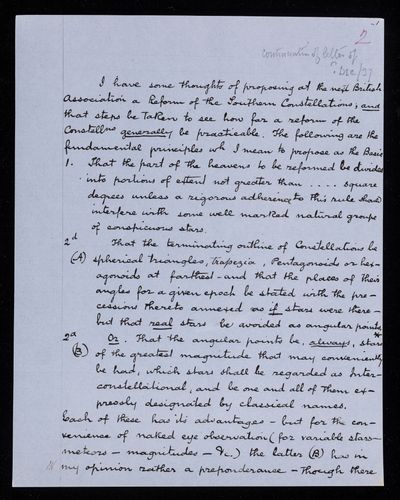 2
continuation of letter of
? Dec/37
I have some thoughts of proposing at the next British
Association a Reform of the Southern Constellations; and
that steps be taken to see how far a reform of the
Constellns generally be practicable. The following are the
fundamental principles wh I mean to propose as the Basis
1. That the part of the heavens to be reformed be divided
into portions of extent not greater than .... square
degrees unless a rigorous adherence to this rule shd
interfere with some well marked natural groups
of conspicuous stars.
2d That the terminating outline of Constellations be
(A) spherical triangles, trapezia, Pentagonoids or hex-
agonoids at farthest - and that the places of their
angles for a given epoch be stated with the pre-
cessions thereto annexed as if stars were there -
but that real stars be avoided as angular points
2d Or. That the angular points be, always, stars
(B) of the greatest magnitude that may conveniently
be had, which stars shall be regarded as Inter-
constellational, and be one and all of them ex-
pressly designated by classical names.
Each of these has its advantages - but for the con-
venience of naked eye observation (for variable stars -
meteors - magnitudes - &c.) the latter (B) has in
my opinion rather a preponderance - Though there